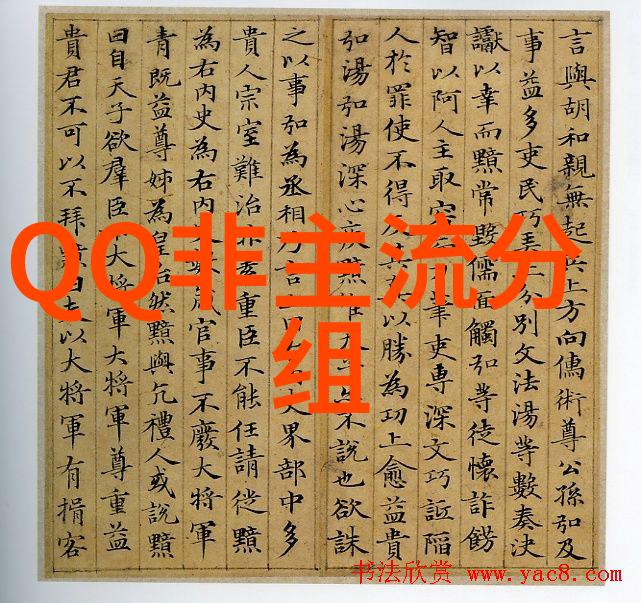 言與胡和親無起兵上方向儒術尊公孫弘及
事益多吏民巧弄上分別文法湯等數奏決
讞以幸而黯常毀儒面觸弘等徒懷詐飾
智以阿人主取容而刀筆吏專深文巧詆陷
人於罪使不得反其以勝為功上愈益貴
弘湯弘湯深心疾黯唯天子亦不說也欲誅
之以事弘為丞相乃言上曰右內史界部中多
貴人宗室難治非素重臣不能任請徙黯
為右內史為右內史數歲官事不廢大將軍
青既益尊姊為皇后然黯與亢禮人或說黯
曰自天子欲羣臣下大將軍大將軍尊重益
貴君不可以不拜黯曰夫以大將軍有揖客
QQ非主流分
组
书法欣赏 www.yac8.com